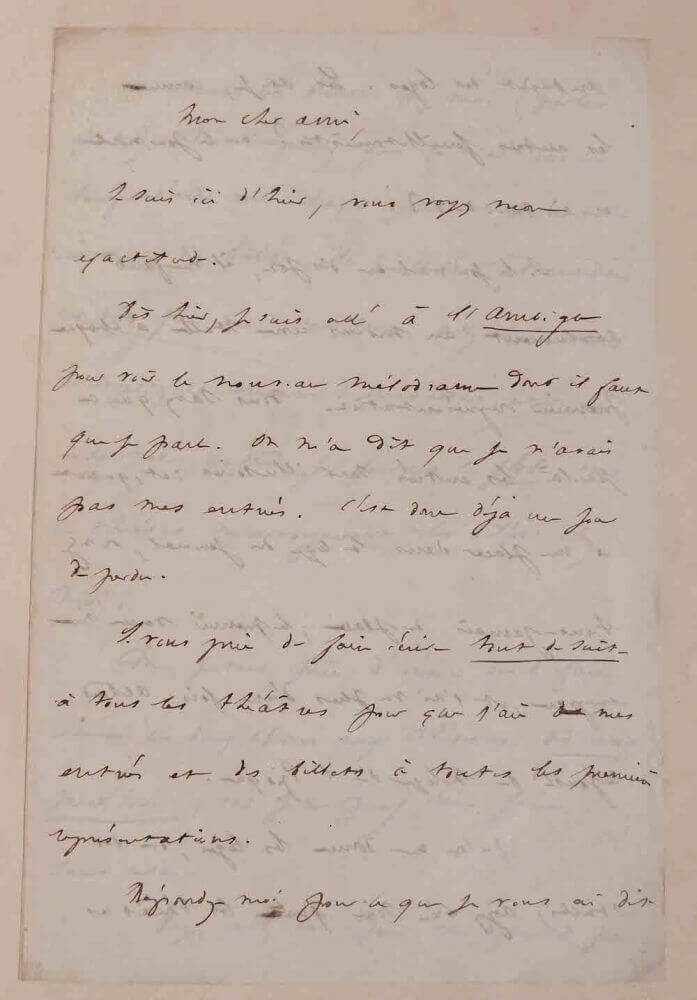 Mon cher ami,
Je suis ici d'hier, vous voyez mon
exactitude.
Dès hier, je suis allé à l'Ambigu
pour voir le nouveau mélodrame dont il faut
que je parle. On m'a dit que je n'avais
pas mes entrées. C'est donc déjà un jour
de perdu.
Je vous prie de faire écrire tout de suite
à tous les théâtres pour que j'aie mes
entrées et des billets à toutes les premières
représentations.
Répondez moi pour ce que je vous ai dit